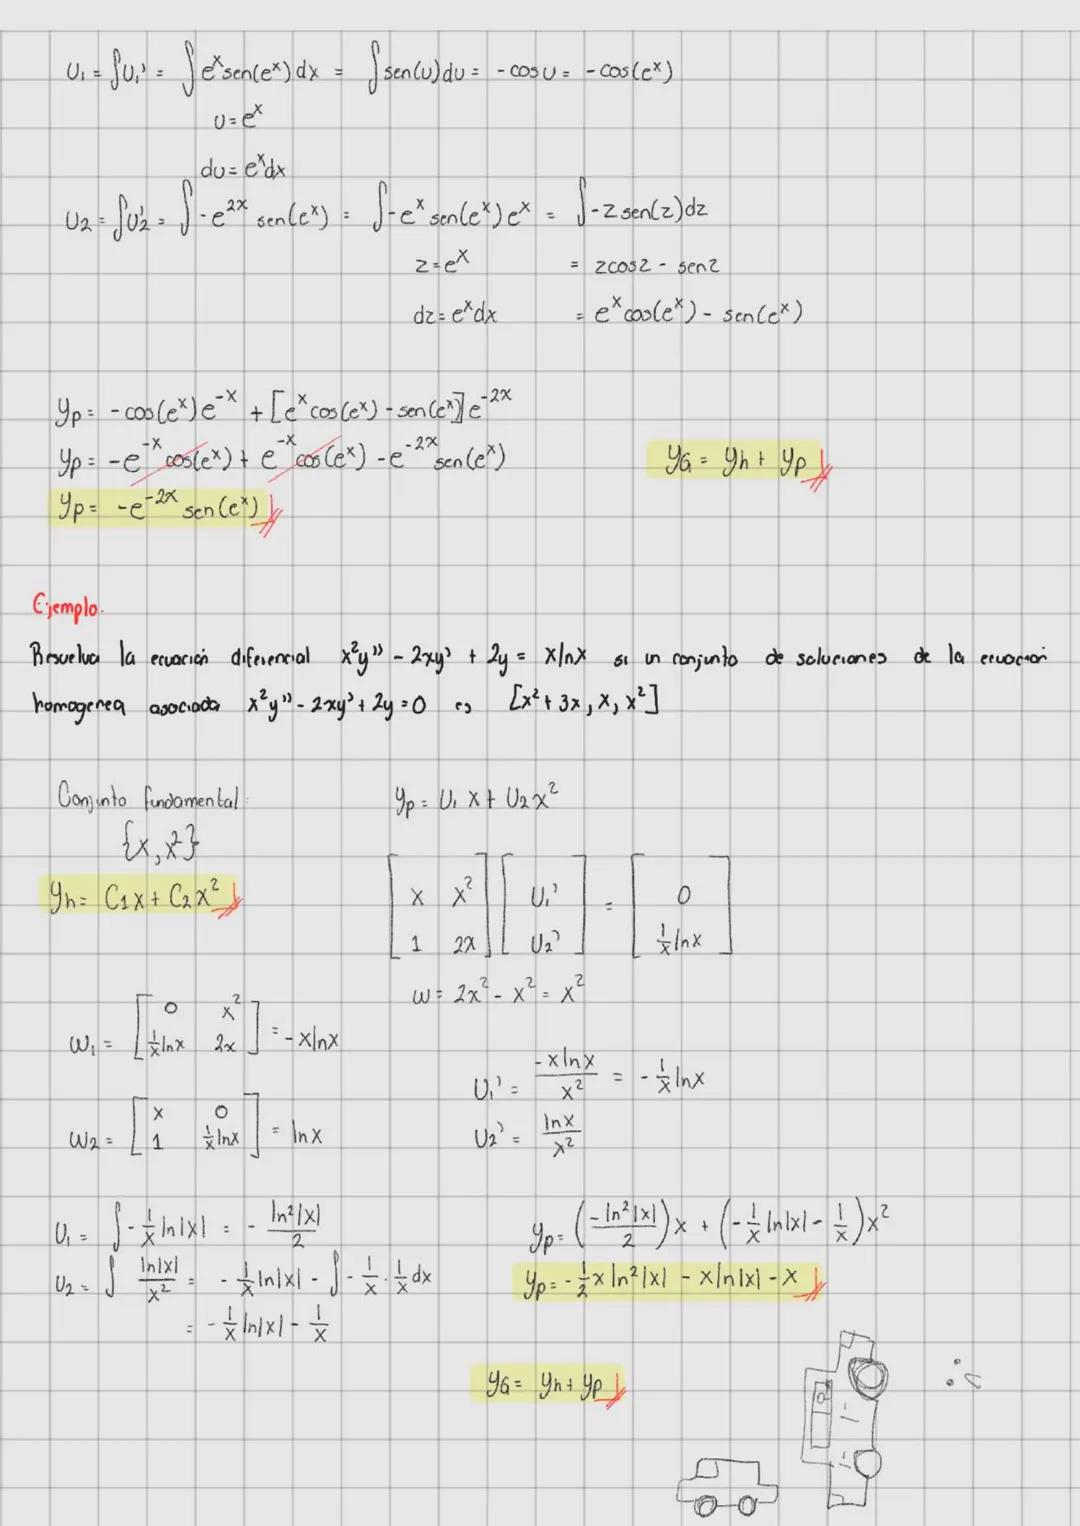 U₁ = ∫U₁' = ∫eˣsen(eˣ)dx = ∫sen(u)du = -cosu = -cos(eˣ)
u=eˣ
du=eˣdx
U₂ = ∫U₂' = ∫-e²ˣ sen(eˣ) = ∫-eˣ sen(eˣ)eˣ = ∫-zsen(z)dz
z=eˣ = zcosz - senz
dz=eˣdx = eˣcos(eˣ) - sen(eˣ)
yp = -cos(eˣ)e⁻ˣ + [eˣcos(eˣ) - sen(eˣ)]e⁻²ˣ
yp = -e⁻ˣcos(eˣ) + e⁻ˣcos(eˣ) - e⁻²ˣsen(eˣ)
yG = yh + yp
yp = -e⁻²ˣ sen(eˣ)
Ejemplo.
Resuelva la ecuación diferencial x²y'' - 2xy' + 2y = xlnx si un conjunto de soluciones de la ecuación
homogenea asociada x²y'' - 2xy' + 2y = 0 es [x² + 3x, x, x²]
Conjunto fundamental:
{x, x²}
yh = C1x + C2x²
yp = U₁x + U₂x²
[x x²] [U₁'] = [0]
[1 2x] [U₂'] [1/x lnx]
w = 2x² - x² = x²
w₁ = [0 x²; 1/x lnx 2x] = -xlnx
w₂ = [x 0; 1 1/x lnx] = lnx
U₁' = -xlnx/x² = -1/x lnx
U₂' = lnx/x²
U₁ = ∫-1/x ln|x| = -ln²|x|/2
U₂ = ∫ ln|x|/x² = -1/x ln|x| - ∫-1/x · 1/x dx
= -1/x ln|x| - 1/x
yp = (-ln²|x|/2)x + (-1/x ln|x| - 1/x)x²
yp = -1/2 x ln²|x| - xln|x| - x
yG = yh + yp